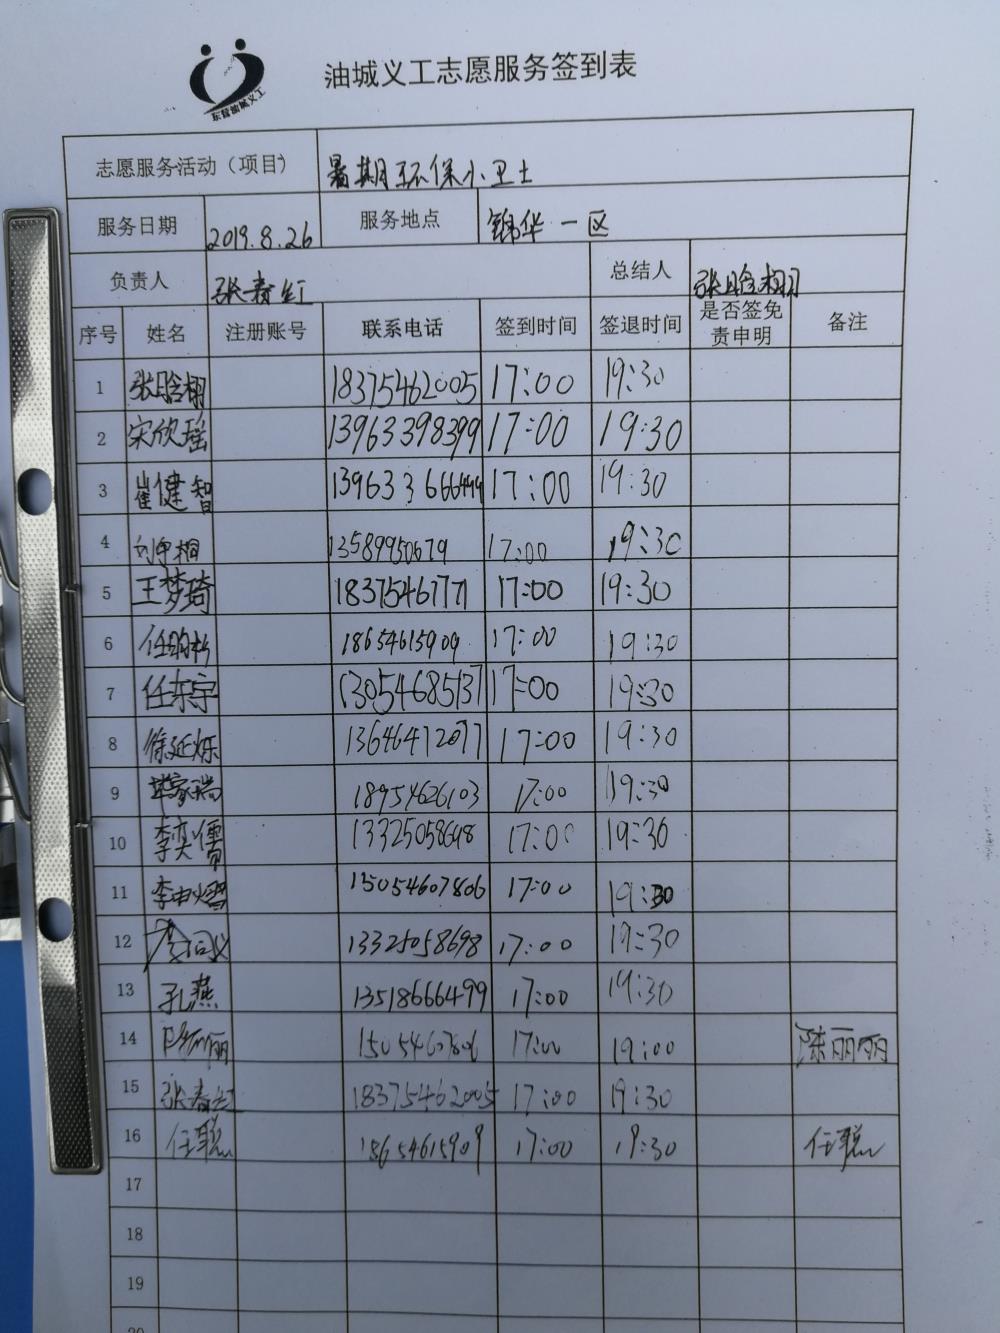 东营油城义工
油城义工志愿服务签到表
志愿服务活动（项目） 暑期环保小卫士
服务日期 2019.8.26 服务地点 锦华一区
负责人 张春红 总结人 张晗栩
序号 姓名 注册账号 联系电话 签到时间 签退时间 是否签免责申明 备注
1 张晗栩 18375462005 17:00 19:30
2 宋欣瑶 13963398399 17:00 19:30
3 崔健智 13963366649 17:00 19:30
4 13589950679 17:00 19:30
5 王梦琦 1837546777 17:00 19:30
6 18654615909 17:00 19:30
7 任东宇 13054685137 17:00 19:30
8 徐延烁 13646472077 17:00 19:30
9 18954626103 17:00 19:30
10 李奕儒 13325058698 17:00 19:30
11 15054607806 17:00 19:30
12 13325058698 17:00 19:30
13 孔燕 13518666499 17:00 19:30
14 陈丽丽 15054607806 17:00 19:00 陈丽丽
15 张春红 18375462005 17:00 19:30
16 任聪 18654615909 17:00 19:30 任聪
17
18
19
20